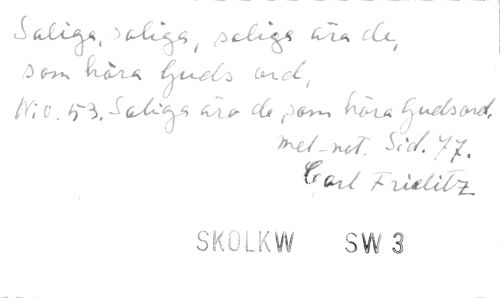 Saliga, saliga, saliga äro de,
som höra Guds ord,
N:o. 53. Saliga äro de, som höra Guds ord,
mel-not. Sid. 77.
Carl Frielitz
SKOLKW SW 3